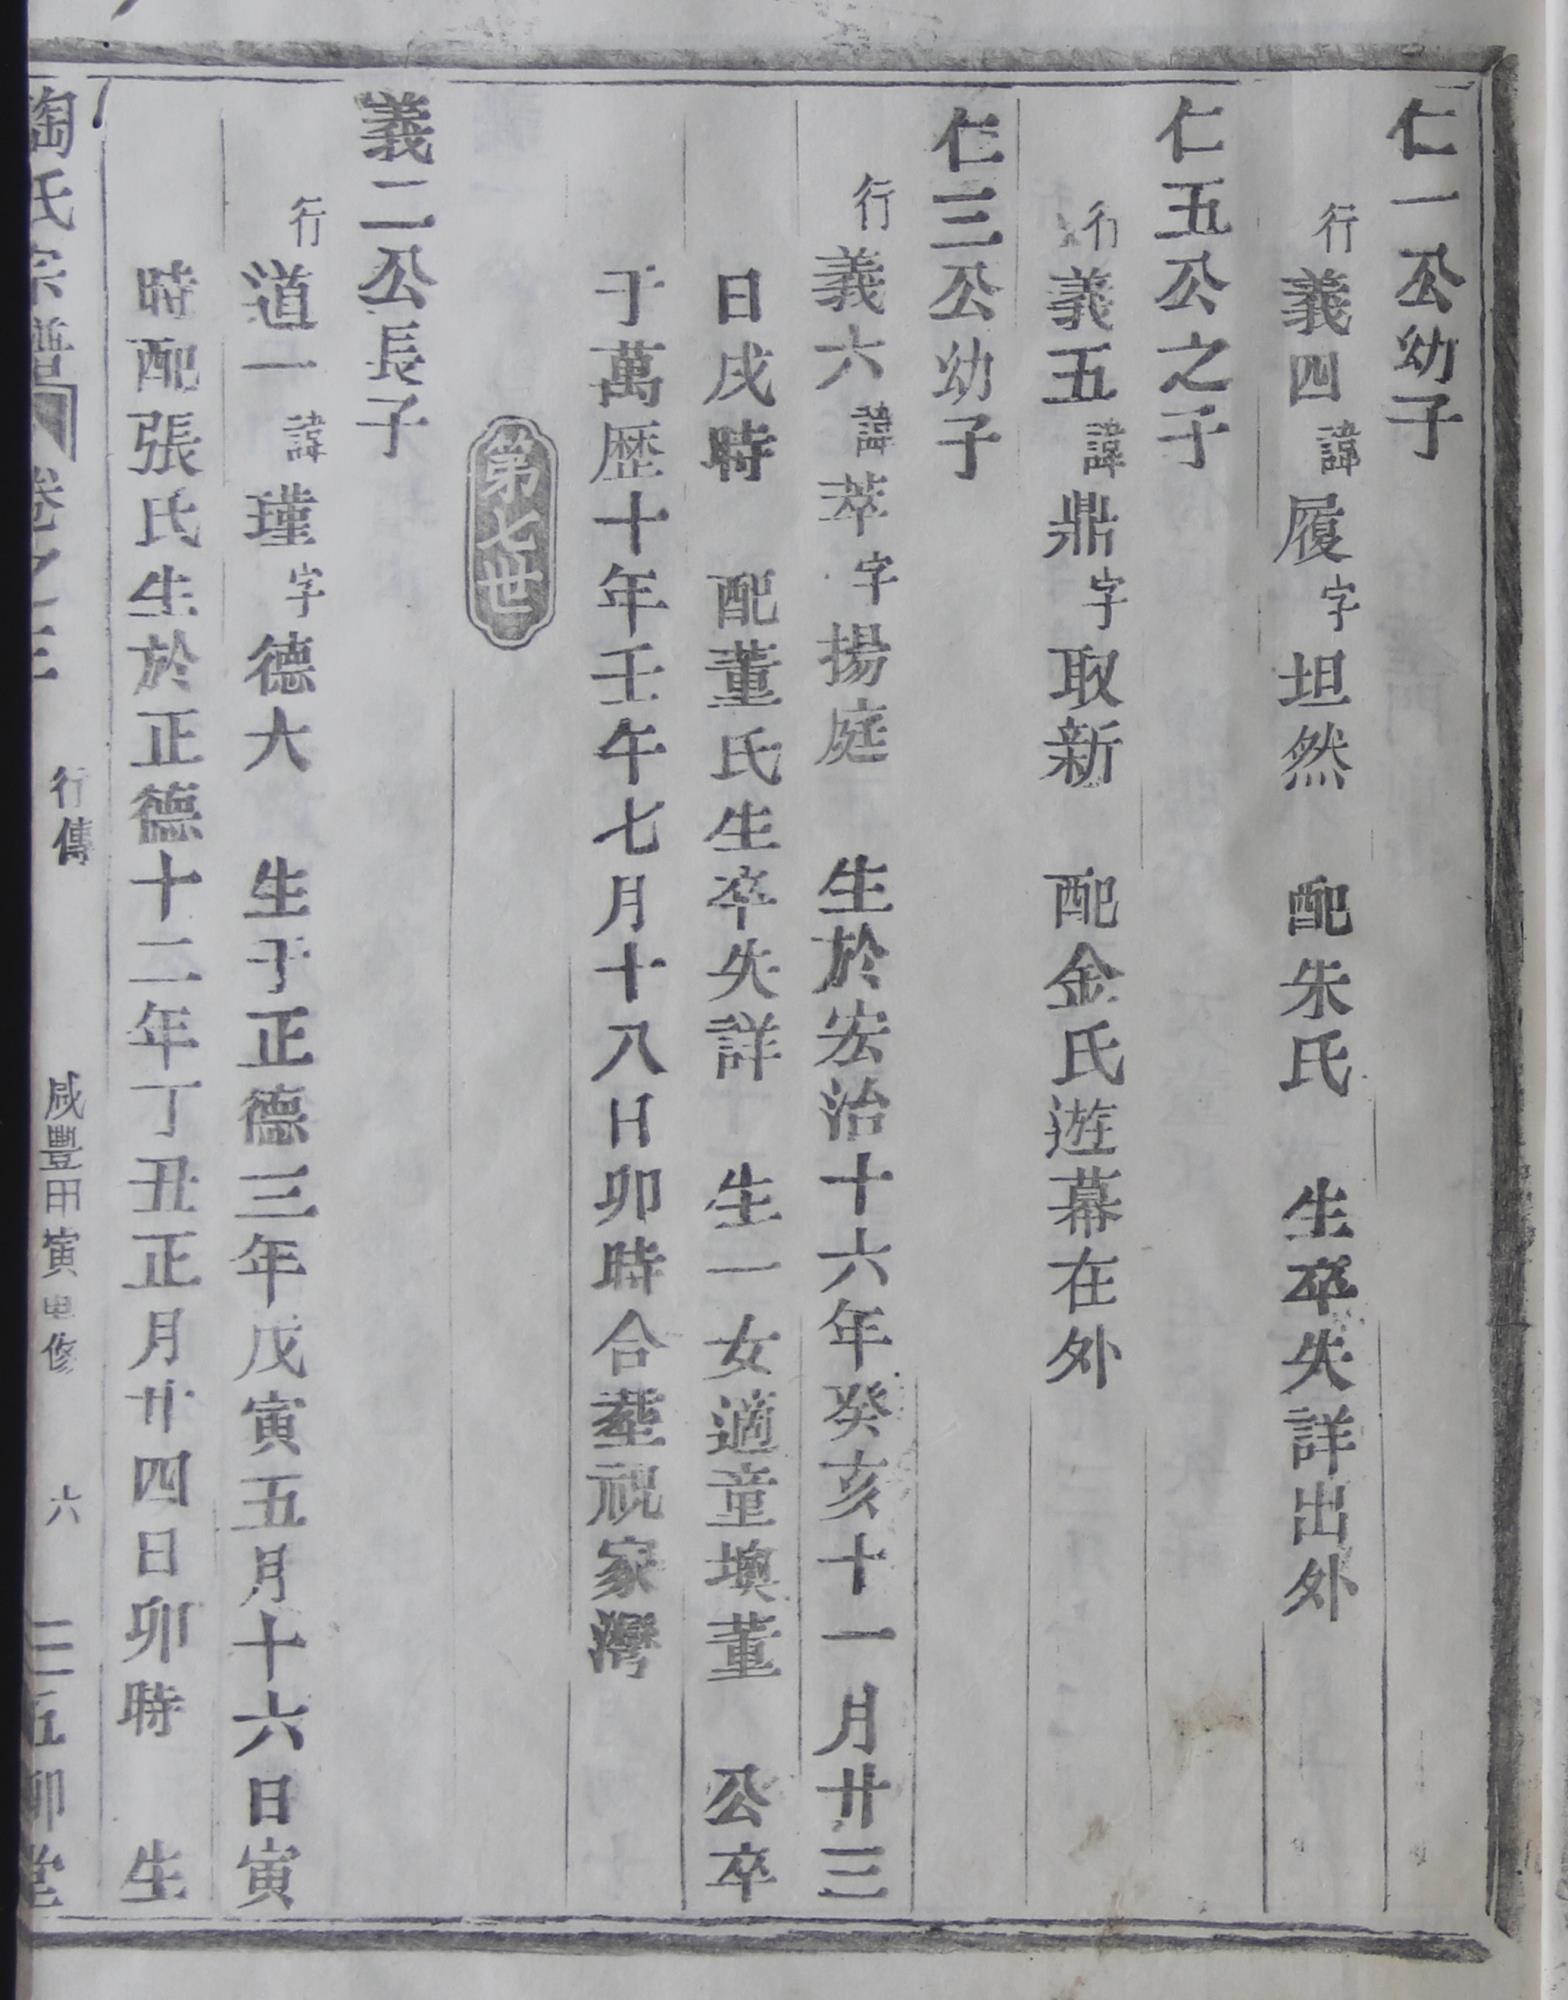 仁一公幼子
行義四諱履字坦然　配朱氏　生卒失詳出外
仁五公之子
行義五諱鼎字取新　配金氏遊幕在外
仁三公幼子
行義六諱萃字揚庭　生於宏治十六年癸亥十一月廿三
日戌時　配董氏生卒失詳　生一女適童墺董　公卒
于萬歷十年壬午七月十八日卯時合塟祝家灣
第七世
義二公長子
行道一諱瑾字德大　生于正德三年戊寅五月十六日寅
時配張氏生於正德十二年丁丑正月廿四日卯時　生
陶氏宗譜　卷之三　行傳　咸豐甲寅重修　六　五柳堂